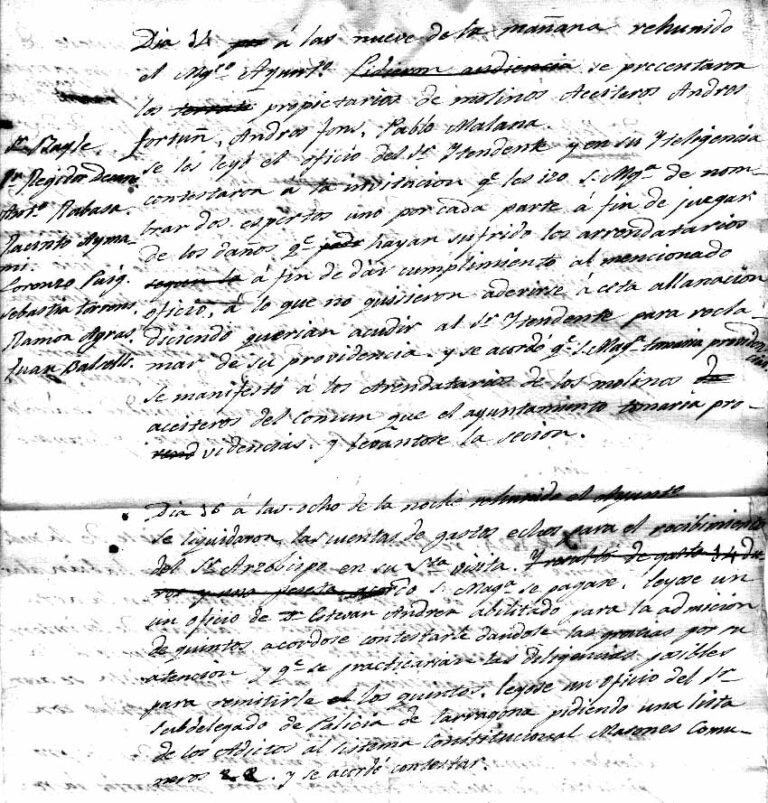 Dia 14 á las nueve de la mañana rehunido
el Mgco. Ayunto. hidieron audiencia se precentaron
los propietarios de molinos Aceiteros Andres
fortuñ, Andres fons, Pablo Malana.
se les leyó el oficio del Sr. Ytendente y en su Yteligencia
contestaron á la invitacion qe. les izo S. Mga. de nom-
brar dos espertos uno por cada parte á fin de juegar
de los daños qe. hayan sufrido los arrendatarios
segun la á fin de dar cumplimiento al mencionado
oficio, á lo que no quisieron aderirse á esta allanacion
disciendo querian acudir al Sr. Ytendente para recla-
mar de su providencia. y se acordó qe. S. Maga. tomaria providen-
cias
se manifestó á los Arendatarios de los molinos
aceiteros del Comun que el ayuntamiento tomaria pro-
videncias. y levantose la secion.
Sr. Bayle.
Sr. Regidor Decano
Anto. Rabasa.
Jacinto Ayma-
mi
Lorenzo Puig
Sebastia torrens
Ramon Agras
Juan Balvells.
Dia 16 á las ocho de la noche rehunido el Ayunto.
se liquidaron las cuentas de gastos echos para el recibimiento
del Sr. Arzobispo en su Sta. visita. Y resultó de gasto 14 du-
ros y una peseta S. Maga. se pagase. leyose un
un oficio de Dn. Estevan Andreu abilitado para la admicion
de quintos acordose contestarle dandole las gracias por su
atencion y qe. se practicarian las diligencias posibles
para remitirle los quintos. leyose un oficio del Sr.
Subdelegado de Palicia de Tarragona pidiendo una lista
de los Adictos al sistema Constitucional Masones Comu-
neros && y se acordó contestar.